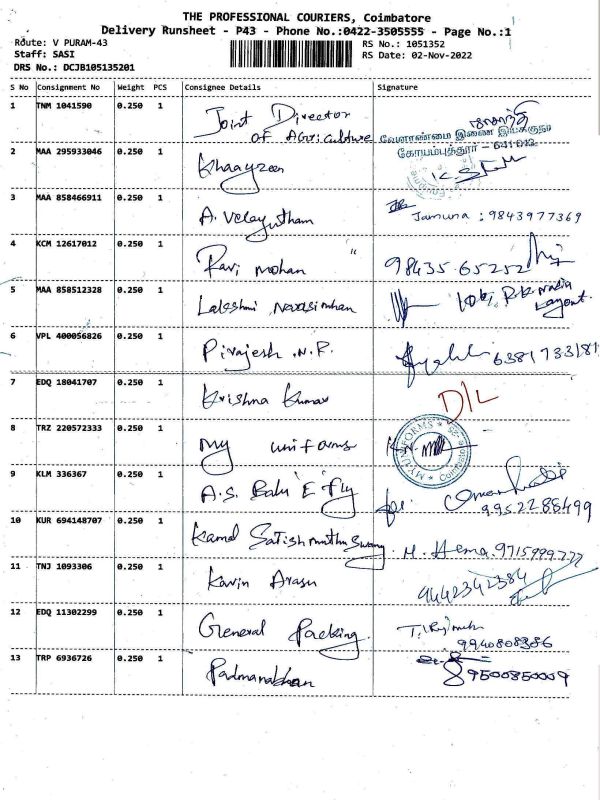 THE PROFESSIONAL COURIERS, Coimbatore
Delivery Runsheet - P43 - Phone No.:0422-3505555 - Page No.:1
Route: V PURAM-43
RS No.: 1051352
Staff: SASI
RS Date: 02-Nov-2022
DRS No.: DCJB105135201
S No Consignment No Weight PCS Consignee Details Signature
1 TNM 1041590 0.250 1 Joint Director
of Agriculture வேளாண்மை இணை இயக்குநர்
கோயம்புத்தூர் – 641 013
2 MAA 295933046 0.250 1 Khaayzeen
3 MAA 858466911 0.250 1 A. Velayutham Jamuna : 9843977369
4 KCM 12617012 0.250 1 Ravi mohan " 98435 65252
5 MAA 858512328 0.250 1 Lakshmi Narasimhan Layout.
6 VPL 400056826 0.250 1 Pirajesh .N.P.
7 EDQ 18041707 0.250 1 Krishna Kumar D/L
8 TRZ 220572333 0.250 1 my uniforms MY UNIFORMS
9 KLM 336367 0.250 1 A.S. Balu E fly
9952288499
10 KUR 694148707 0.250 1 Kamal Satish muthu Swamy M. Hema. 9715999777
11 TNJ 1093306 0.250 1 Kavin Arasu 9442342384
12 EDQ 11302299 0.250 1 General Packing
9940808386
13 TRP 6936726 0.250 1 Padmanabhan 9500850009